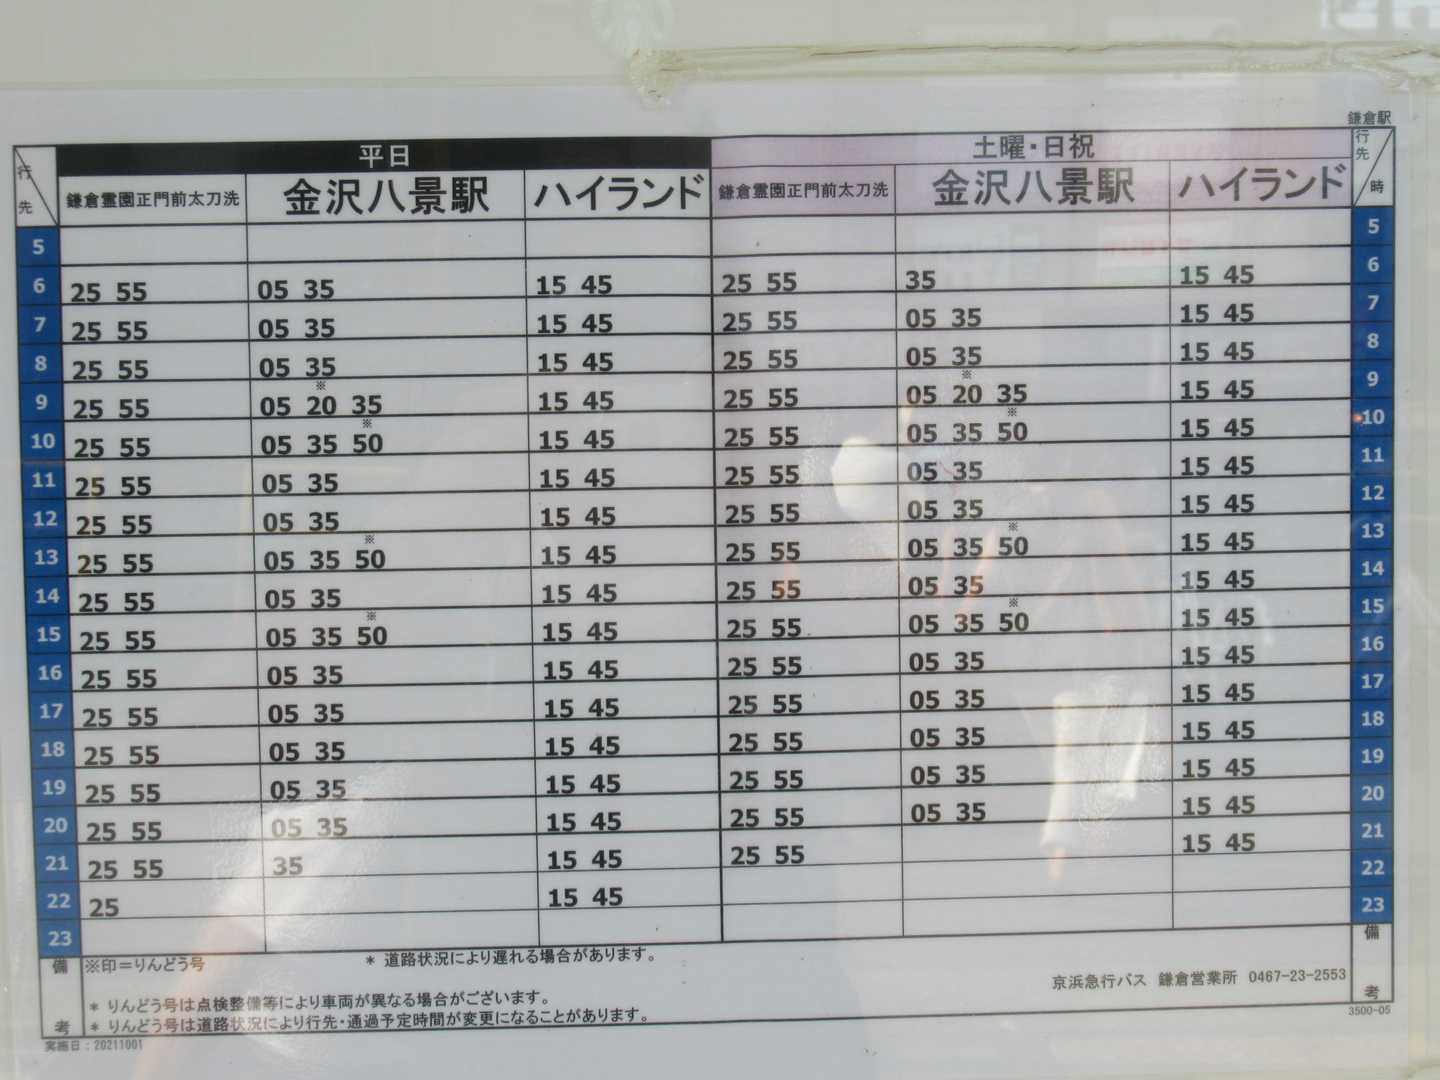 鎌倉駅
行先 平日 土曜・日祝 行先 時
鎌倉霊園正門前太刀洗 金沢八景駅 ハイランド 鎌倉霊園正門前太刀洗 金沢八景駅 ハイランド
5 5
6 25 55 05 35 15 45 25 55 35 15 45 6
7 25 55 05 35 15 45 25 55 05 35 15 45 7
8 25 55 05 35 15 45 25 55 05 35 15 45 8
9 25 55 05 ※20 35 15 45 25 55 05 ※20 35 15 45 9
10 25 55 05 35 ※50 15 45 25 55 05 35 ※50 15 45 10
11 25 55 05 35 15 45 25 55 05 35 15 45 11
12 25 55 05 35 15 45 25 55 05 35 15 45 12
13 25 55 05 35 ※50 15 45 25 55 05 35 ※50 15 45 13
14 25 55 05 35 15 45 25 55 05 35 15 45 14
15 25 55 05 35 ※50 15 45 25 55 05 35 ※50 15 45 15
16 25 55 05 35 15 45 25 55 05 35 15 45 16
17 25 55 05 35 15 45 25 55 05 35 15 45 17
18 25 55 05 35 15 45 25 55 05 35 15 45 18
19 25 55 05 35 15 45 25 55 05 35 15 45 19
20 25 55 05 35 15 45 25 55 05 35 15 45 20
21 25 55 35 15 45 25 55 15 45 21
22 25 15 45 22
23 23
備考 ※印＝りんどう号 * 道路状況により遅れる場合があります。 備考
京浜急行バス 鎌倉営業所 0467-23-2553
* りんどう号は点検整備等により車両が異なる場合がございます。
* りんどう号は道路状況により行先・通過予定時間が変更になることがあります。
3500-05
実施日：20211001